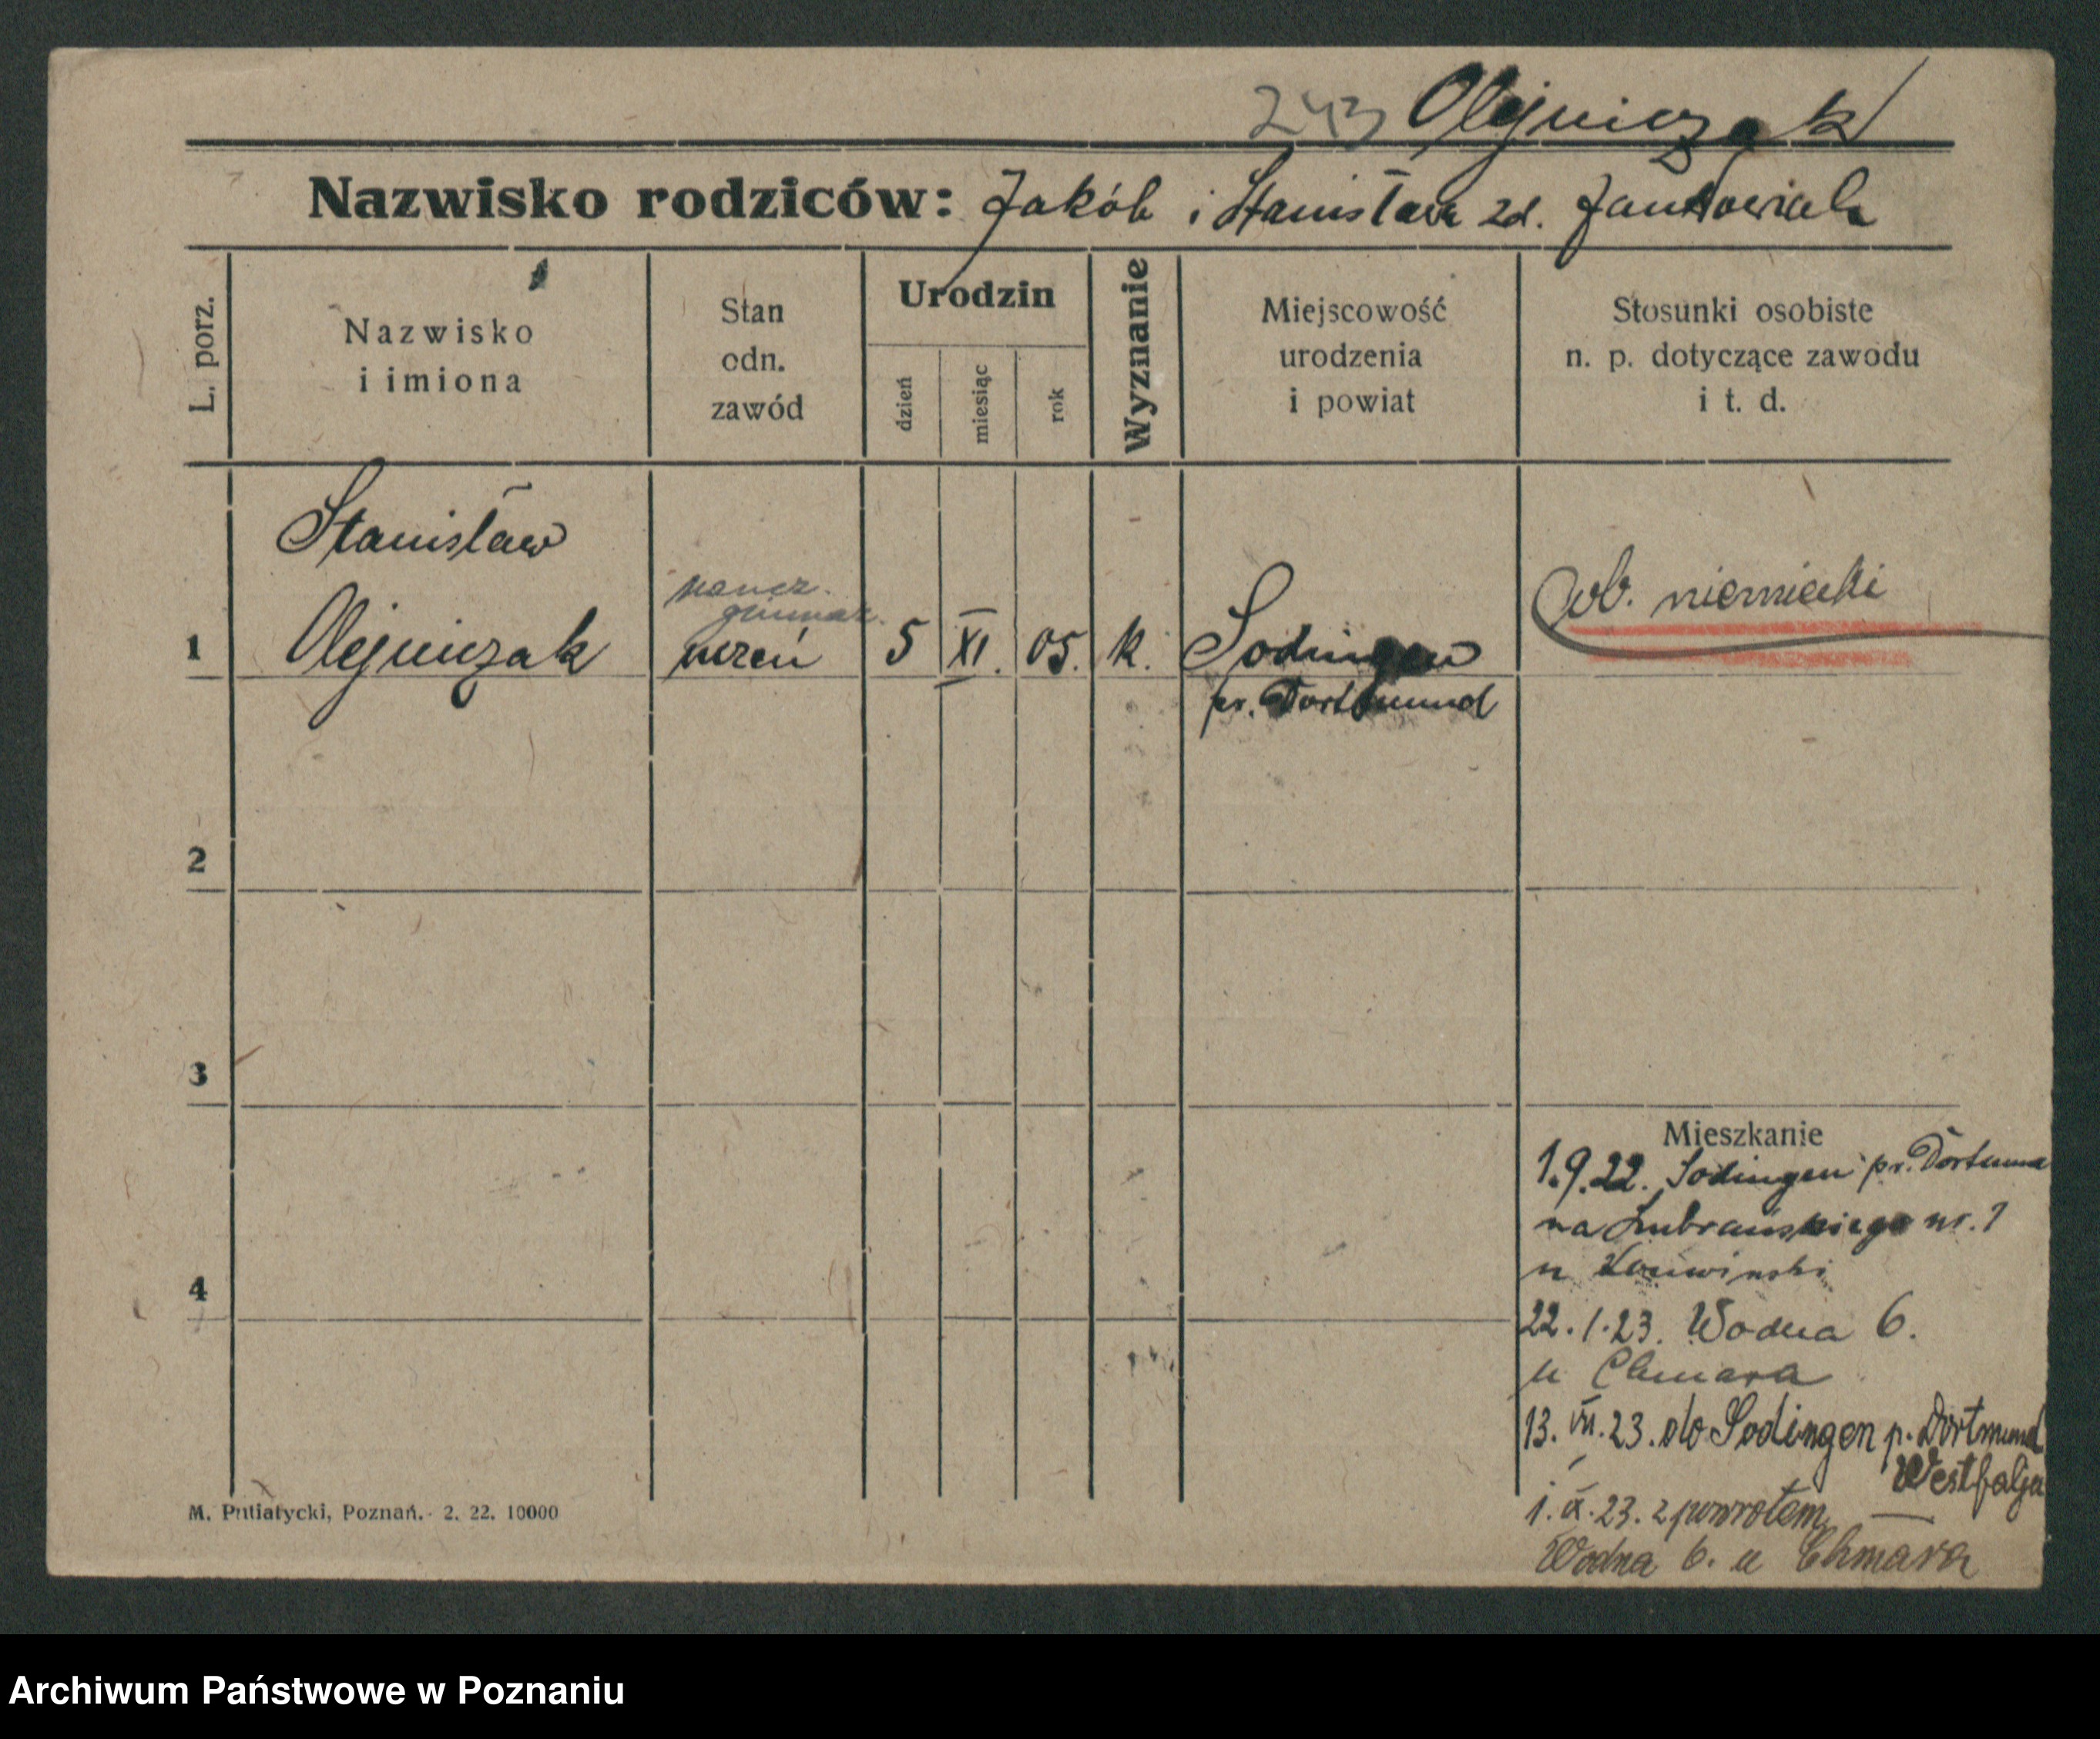 243 Olejniczak
Nazwisko rodziców: Jakób i Stanisława zd. Jankowiak
L. porz.
Nazwisko
i imiona
Stan
odn.
zawód
Urodzin
dzień
miesiąc
rok
Wyznanie
Miejscowość
urodzenia
i powiat
Stosunki osobiste
n. p. dotyczące zawodu
i t. d.
Stanisław
naucz.
gimnaz.
ob. niemiecki
1 Olejniczak uczeń 5 XI. 05. k. Sodingen
pr. Dortmund
2
3
4
Mieszkanie
1.9.22. Sodingen pr. Dortmund
na Lubrańskiego nr. 1
u
22.1.23. Wodna 6.
u Chmara
13. VII. 23. do Sodingen p. Dortmund
Westfalja
1. IX. 23. z powrotem
Wodna 6. u Chmara
M. Putiatycki, Poznań.- 2. 22. 10000
Archiwum Państwowe w Poznaniu